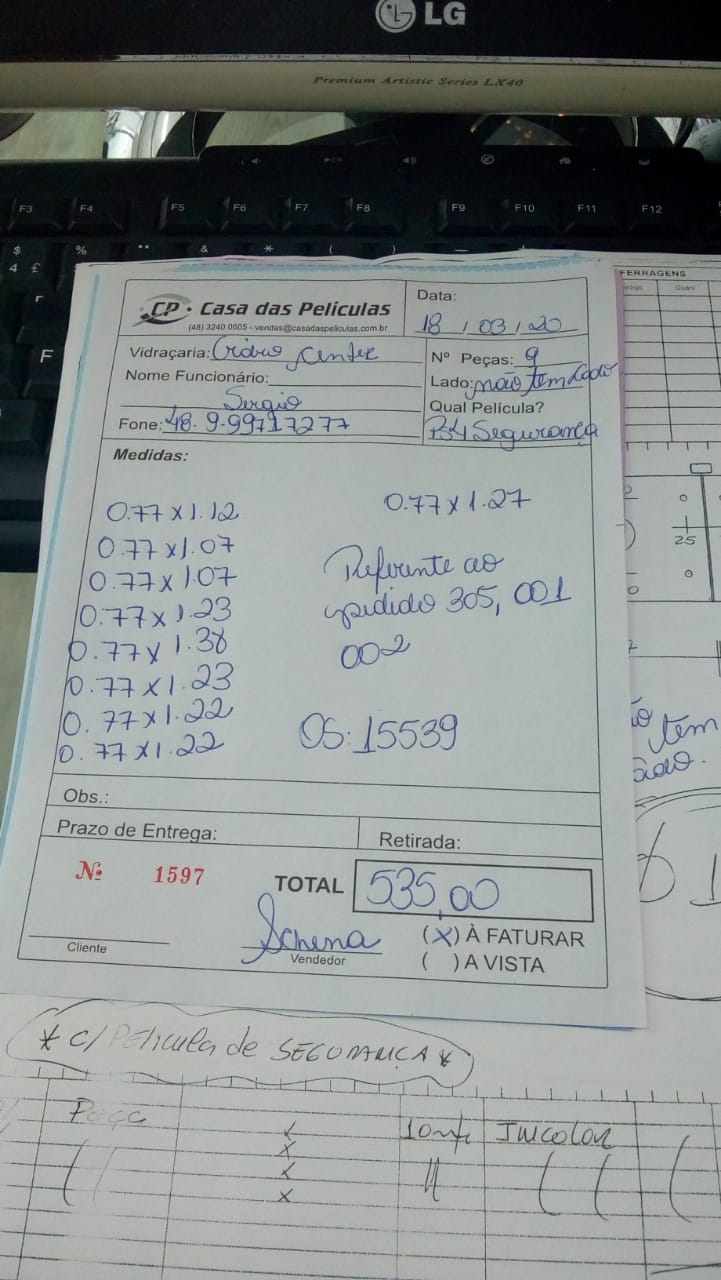 LG
Premium Artistic Series LX40
F3 F4 F5 F6 F7 F8 F9 F10 F11 F12
$ % & * (  )
4 £
F
FERRAGENS
Quant
CP. Casa das Películas
(48) 3240 0605 - vendas@casadaspeliculas.com.br
Data:
18 / 03 / 20
Vidraçaria: Vidro Center
Nome Funcionário:
Sergio
Fone: 48. 9-99717277
Nº Peças: 9
Lado: não tem Lado
Qual Película?
PS4 Segurança
Medidas:
0.77 x 1.12
0.77 x 1.07
0.77 x 1.07
0.77 x 1.23
0.77 x 1.38
0.77 x 1.23
0.77 x 1.22
0.77 x 1.22
0.77 x 1.27
Referente ao
pedido 305, 001
002
OS: 15539
Obs.:
Prazo de Entrega:
Retirada:
Nº 1597
TOTAL 535,00
Cliente
Schena
Vendedor
(X) À FATURAR
( ) A VISTA
25
tem
* C/ Película de SEGURANÇA *
Peça
10mm Incolor